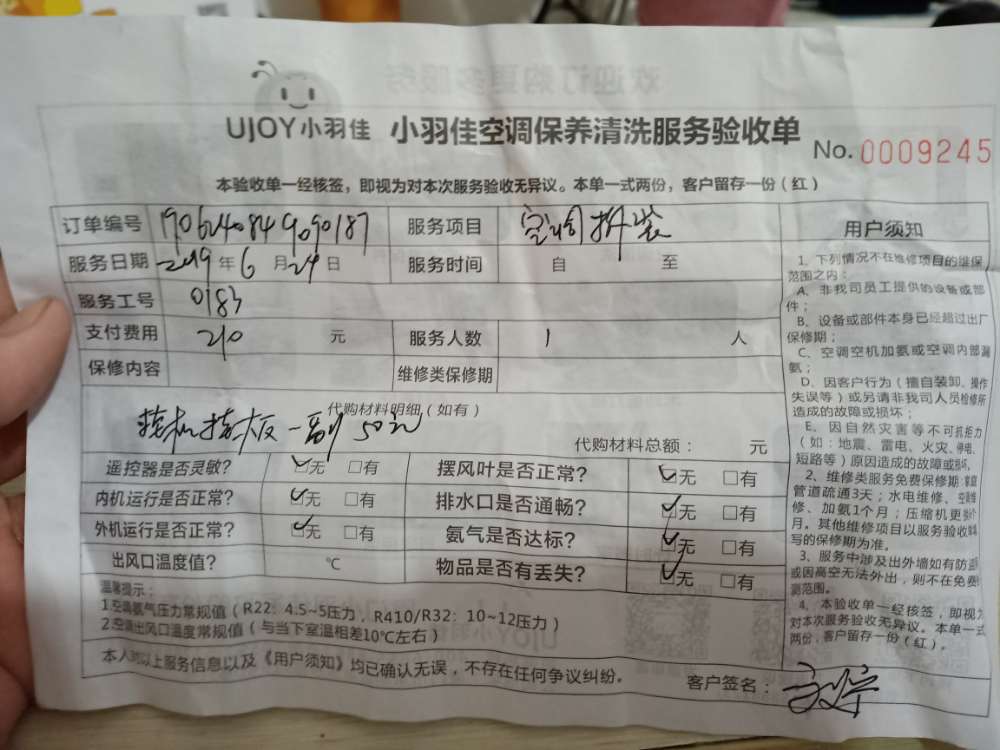 UJOY小羽佳 小羽佳空调保养清洗服务验收单
No. 0009245
本验收单一经核签，即视为对本次服务验收无异议。本单一式两份，客户留存一份（红）
订单编号 服务项目 空调拆装
服务日期 2019 年 6 月 29 日 服务时间 自 至
服务工号 0183
支付费用 210 元 服务人数 1 人
保修内容 维修类保修期
代购材料明细（如有）
挂机挂板一副50元
代购材料总额： 元
遥控器是否灵敏？ ☑无 □有 摆风叶是否正常？ ☑无 □有
内机运行是否正常？ ☑无 □有 排水口是否通畅？ ☑无 □有
外机运行是否正常？ ☑无 □有 氨气是否达标？ ☑无 □有
出风口温度值？ ℃ 物品是否有丢失？ ☑无 □有
温馨提示：
1.空调氨气压力常规值（R22：4.5~5压力，R410/R32：10~12压力）
2.空调出风口温度常规值（与当下室温相差10℃左右）
本人对以上服务信息以及《用户须知》均已确认无误，不存在任何争议纠纷。
客户签名：
用户须知
1、下列情况不在维修项目的维保
范围之内：
A、非我司员工提供的设备或部
件；
B、设备或部件本身已经超过出厂
保修期；
C、空调空机加氨或空调内部漏
氨；
D、因客户行为（擅自装卸、操作
失误等）或另请非我司人员检修所
造成的故障或损坏；
E、因自然灾害等不可抗拒力
（如：地震、雷电、火灾、停电、
短路等）原因造成的故障或损坏。
2、维修类服务免费保修期：家庭
管道疏通3天；水电维修、空调维
修、加氨1个月；压缩机更换
月。其他维修项目以服务验收单
写的保修期为准。
3、服务中涉及出外墙如有防盗
或因高空无法外出，则不在免费
测范围。
4、本验收单一经核签，即视为
对本次服务验收无异议。本单一式
两份，客户留存一份（红）。